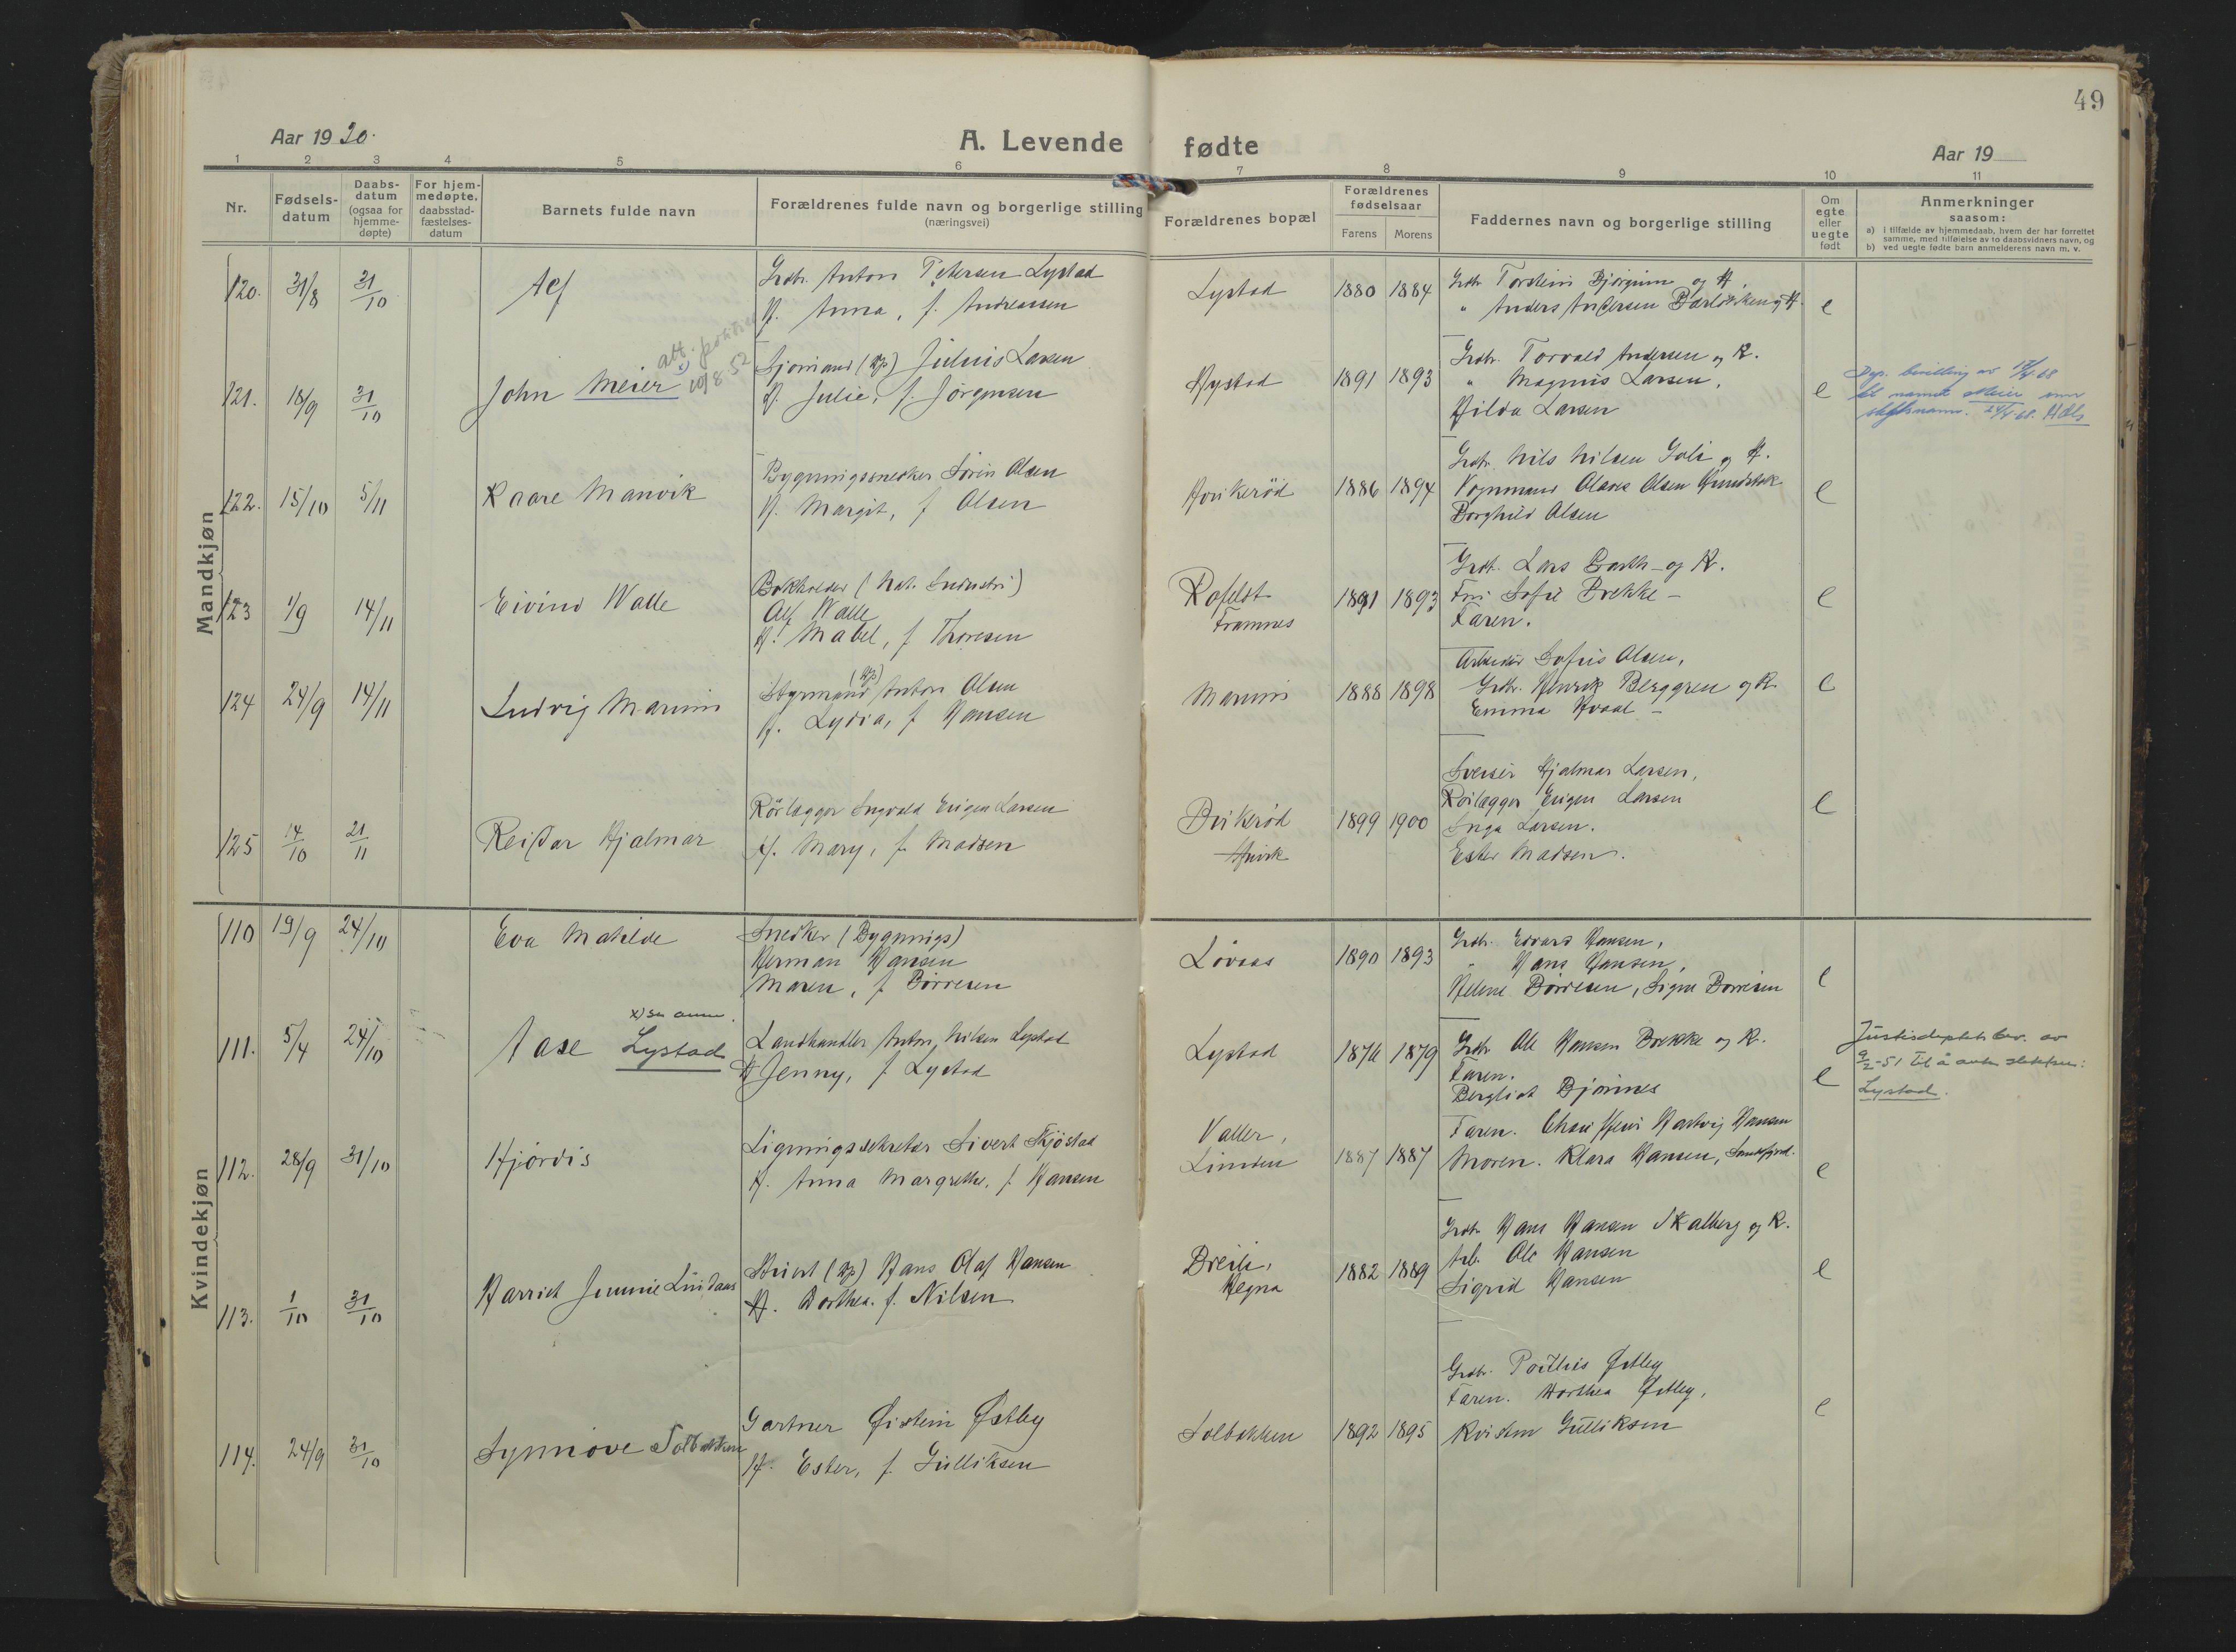 49
Aar 1920.
A. Levende fødte
Aar 19
1 2 3 4 5 6 7 8 9 10 11
Nr.
Fødsels-
datum
Daabs-
datum
(ogsaa for
hjemme-
døpte)
For hjem-
medøpte,
daabsstad-
fæstelses-
datum
Barnets fulde navn
Forældrenes fulde navn og borgerlige stilling
(næringsvei)
Forældrenes bopæl
Forældrenes
fødselsaar
Farens Morens
Faddernes navn og borgerlige stilling
Om
egte
eller
uegte
født
Anmerkninger
saasom:
a) i tilfælde av hjemmedaab, hvem der har forrettet
samme, med tilføielse av to daabsvidners navn, og
b) ved uegte fødte barn anmelderens navn m. v.
Mandkjøn
120. 31/8 31/10
Grdbr. Anton Petersen Lystad
H. Anna, f. Andreassen
Lystad 1880 1884
Anders Andersen
e
121. 18/9 31/10 John Meier
att. 10/8 52
Sjømand Julius Larsen
H. Julie, f. Jørgensen
Hystad 1891 1893
Grdbr. Torvald Andersen og K.
" Magnus Larsen,
Hilda Larsen
e
bevilling av
navnet Meier som
slektsnavn.
122. 15/10 5/11 Kaare Manvik
Bygningssnedker Sørin Olsen
H. Margit, f Olsen
1886 1894
Grdbr. Nils Nilsen og H.
Vognmand Olsen
Borghild Olsen
e
123 1/9 14/11 Eivind Walle
Bokholder
Alf Walle
H. Mabel, f Thoresen
Framnes
1891 1893
Grdbr. Lars og K.
Fru Sofie Brekke
Faren.
e
124 24/9 14/11 Ludvig
Styrmand Anton Olsen
H. Lydia, f Hansen
1888 1898
Arbeider Olsen,
Grdbr. Henrik Berggren og K.
Emma
e
125 14/10 21/11 Reidar Hjalmar
Rørlægger Ingvald Eugen Larsen
H. Mary, f. Madsen
1899 1900
Sveiser Hjalmar Larsen,
Rørlægger Eugen Larsen
Inga Larsen.
Ester Madsen.
e
Kvindekjøn
110 19/9 24/10 Eva Matilde
Snedker (Bygnings)
Herman Hansen
Maren, f Børresen
Løvaas 1890 1893
Grdbr. Edvard Hansen,
" Hans Hansen,
Helene Børresen, Signe Børresen
e
111. 5/4 24/10 Aase Lystad
x) se anm.
Landhandler Anton Nilsen Lystad
H Jenny, f Lystad
Lystad 1876 1879
Grdbr Ole Hansen Brekke og K.
Faren.
Bergliot Bjønnes
e
bev. av
9/2-51 til å anta
Lystad.
112. 28/9 31/10 Hjørdis
Ligningssekretær Sivert
H. Anna Margrethe, f Hansen
Valler,
1887 1887
Faren. Hartvig Hansen
Moren. Klara Hansen, Sandefjord.
e
113. 1/10 31/10 Harriet Jennie Lindaas
Hans Olaf Hansen
H. Dorthea. f. Nilsen
Hegna 1882 1889
Grdbr Hans Hansen Skalberg og K.
Arb. Ole Hansen
Sigrid Hansen
e
114. 24/9 31/10 Synnøve Solbakken
Gartner Øistein Østby
H. Ester, f. Gulliksen
Solbakken 1892 1895
Grdbr. Østby
Faren. Dorthea Østby,
Kristen Gulliksen
e